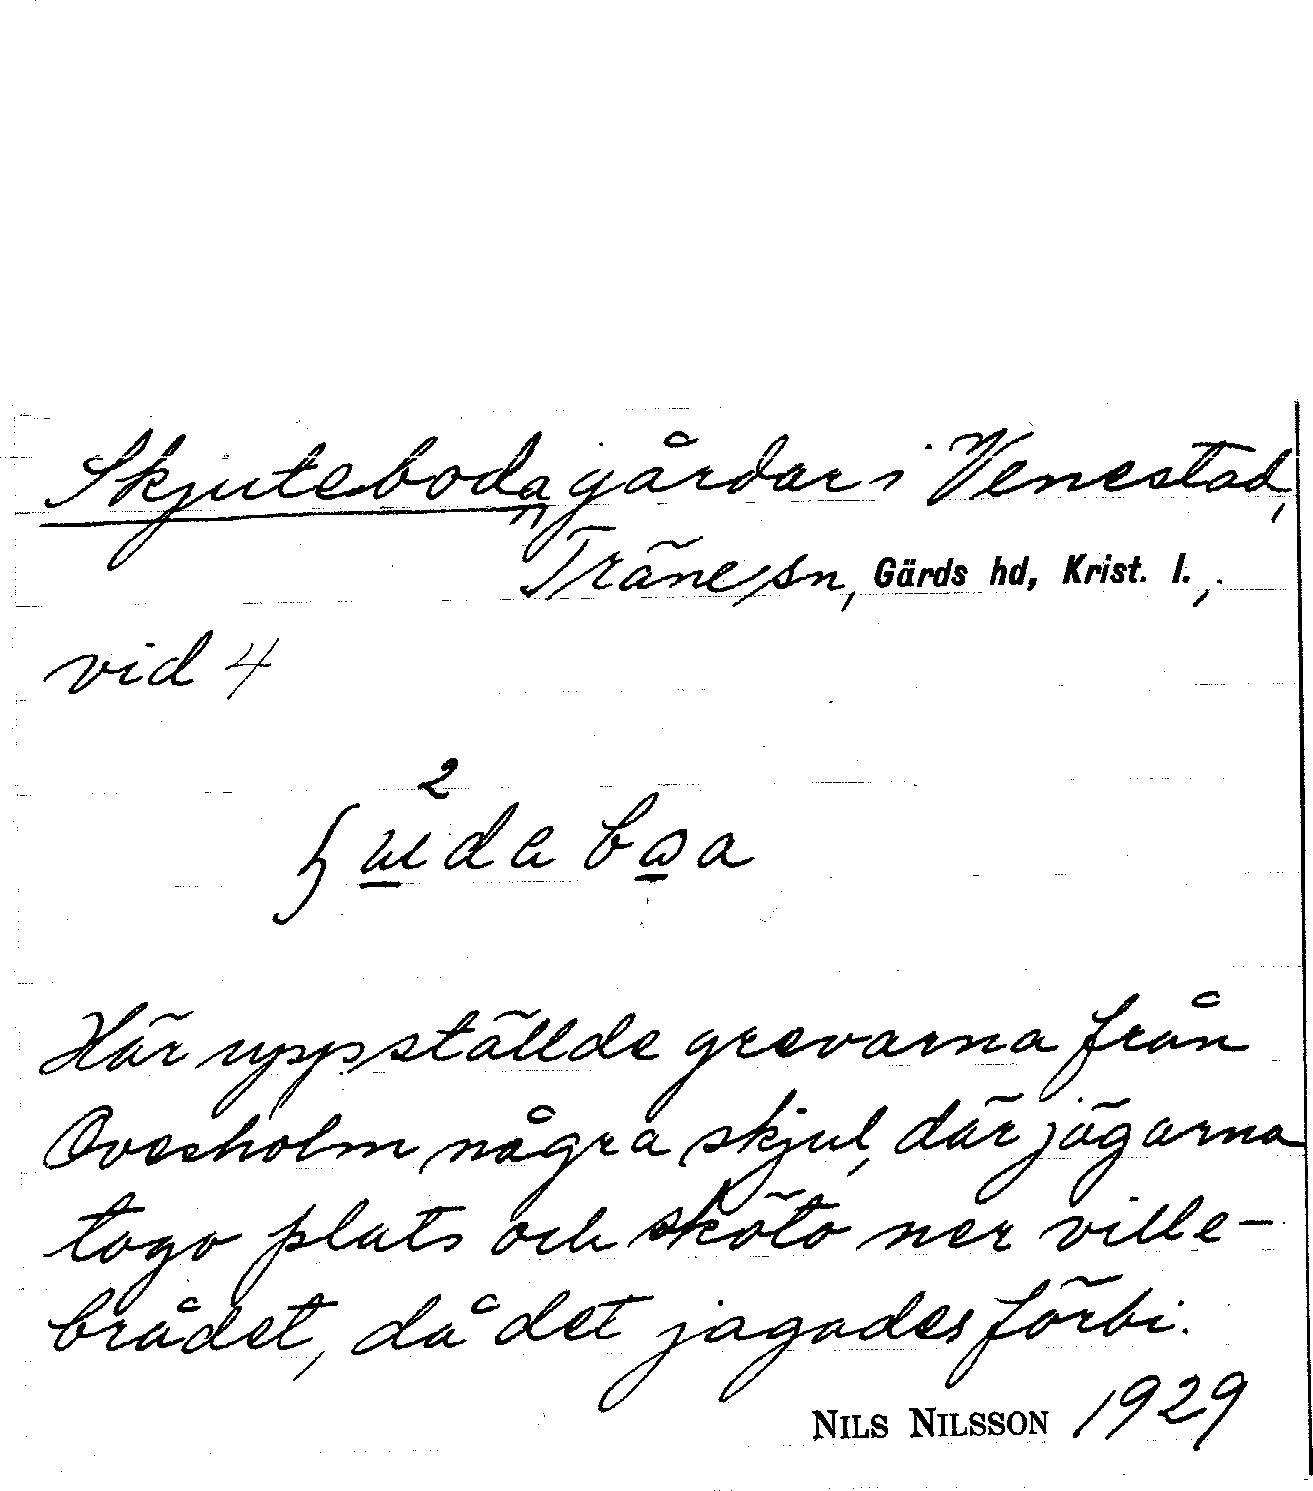 Skjuteboda, gårdar i Venestad,
Träne sn, Gärds hd, Krist. l.,
vid 4
2
Här uppställde grevarna från
Ovesholm några skjul, där jägarna
togo plats och sköto ner ville-
brådet, då det jagades förbi.
NILS NILSSON 1929